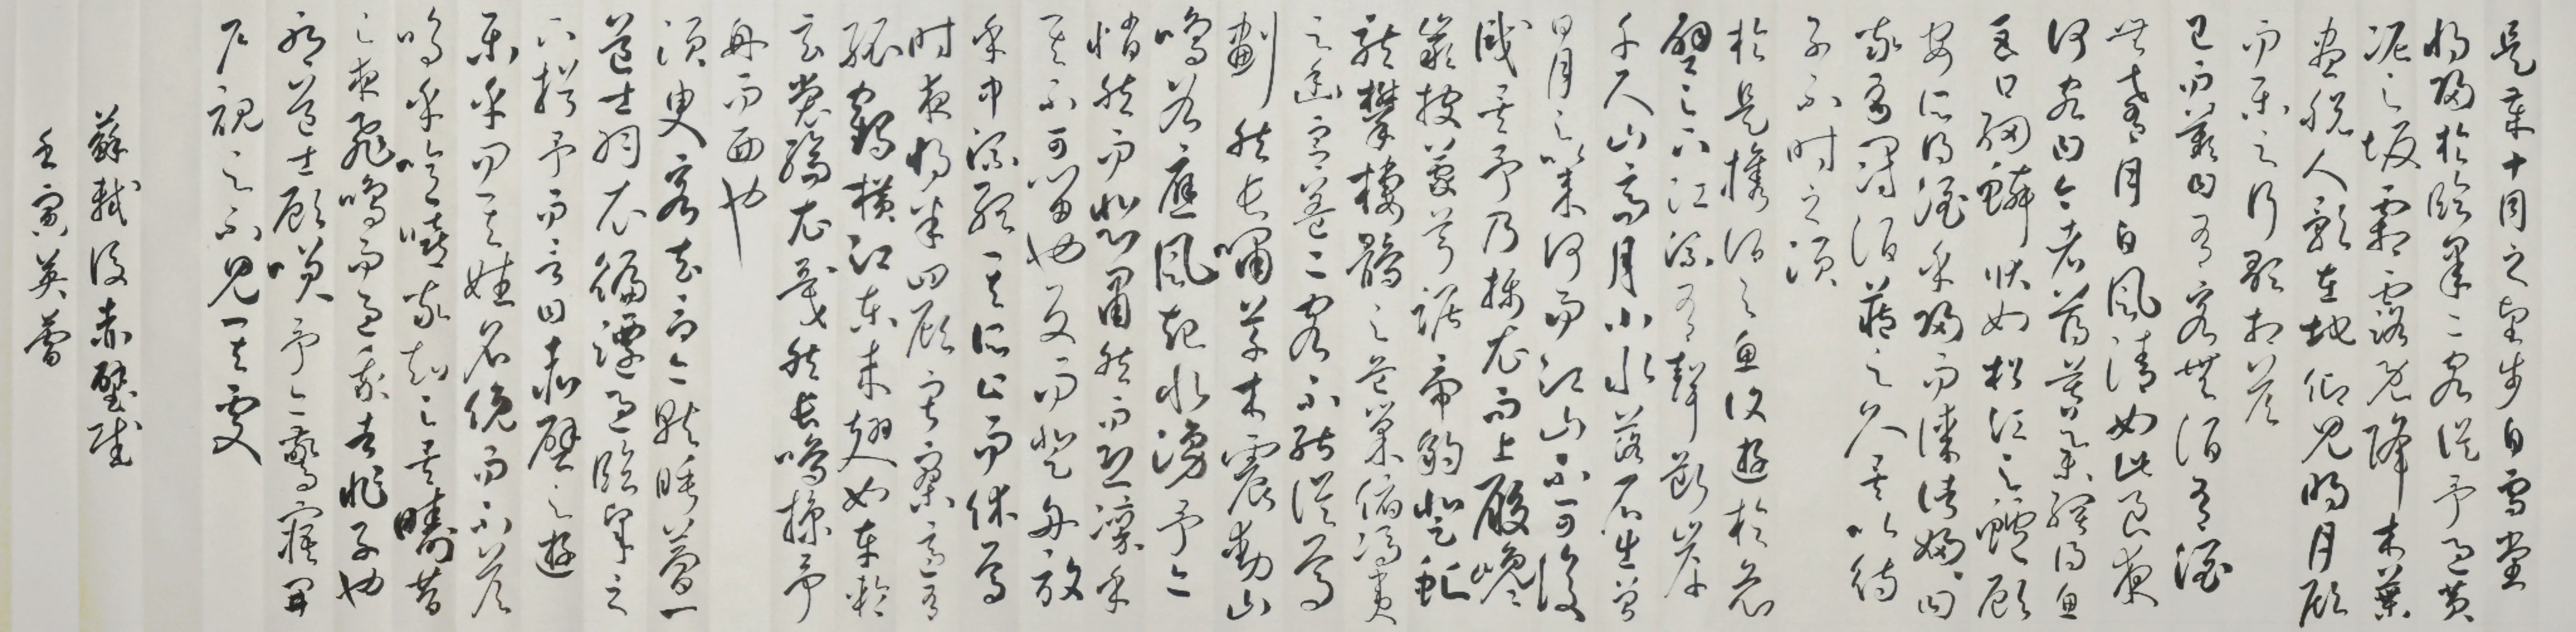 是歲十月之望步自雪堂
將歸於臨皋二客從予過黃
泥之坂霜露既降木葉
盡脫人影在地仰見明月顧
而樂之行歌相答
已而歎曰有客無酒有酒
無肴月白風清如此良夜
何客曰今者薄暮舉網得魚
巨口細鱗狀如松江之鱸顧
安所得酒乎歸而謀諸婦婦曰
我有斗酒藏之久矣以待
子不時之須
於是攜酒與魚復遊於赤
壁之下江流有聲斷岸
千尺山高月小水落石出曾
日月之幾何而江山不可復
識矣予乃攝衣而上履巉
巖披蒙茸踞虎豹登虬
龍攀棲鶻之危巢俯馮夷
之幽宮蓋二客不能從焉
劃然長嘯草木震動山
鳴谷應風起水湧予亦
悄然而悲肅然而恐凜乎
其不可留也反而登舟放
乎中流聽其所止而休焉
時夜將半四顧寂寥適有
孤鶴橫江東來翅如車輪
玄裳縞衣戛然長鳴掠予
舟而西也
須臾客去予亦就睡夢一
道士羽衣翩躚過臨皋之
下揖予而言曰赤壁之遊
樂乎問其姓名俛而不答
嗚乎噫嘻我知之矣疇昔
之夜飛鳴而過我者非子也
耶道士顧笑予亦驚寤開
戶視之不見其處
蘇軾後赤壁賦
壬寅英蕾